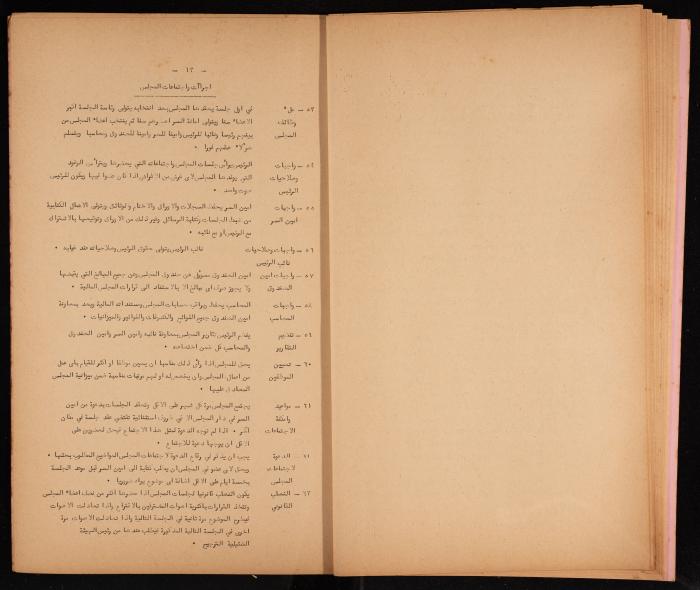 — ١٣ —
اجراءات واجتماعات المجلس
٥٣ — ملء وظائف المجلس
في اول جلسة يعقدها المجلس بعد انتخابه يتولى رئاسة الجلسة اكبر
الاعضاء سنا ويتولى امانة السر اصغرهم سنا ثم ينتخب اعضاء المجلس من
بينهم رئيسا ونائبا للرئيس وامينا للسر وامينا للصندوق ومحاسبا ويتسلم
هؤلاء عملهم فورا .
٥٤ — واجبات وصلاحيات الرئيس
الرئيس يرأس جلسات المجلس واجتماعاته التي يحضرها ويترأس الوفود
التي يوفدها المجلس لاي غرض من الاغراض اذا كان عضوا فيها ويكون للرئيس
صوت واحد .
٥٥ — واجبات امين السر
امين السر يحفظ السجلات والاوراق والاختام والوثائق ويتولى الاعمال الكتابية
من ضبط الجلسات وكتابة الرسائل وغير ذلك من الاوراق وتوقيعها بالاشتراك
مع الرئيس او مع نائبه .
٥٦ — واجبات وصلاحيات نائب الرئيس
نائب الرئيس يتولى حقوق الرئيس وصلاحياته عند غيابه .
٥٧ — واجبات امين الصندوق
امين الصندوق مسؤول عن صندوق المجلس وعن جميع المبالغ التي يقبضها
ولا يجوز صرف اي مبالغ الا بالاستناد الى قرارات المجلس المالية .
٥٨ — واجبات المحاسب
المحاسب يحفظ ويراقب حسابات المجلس ومستنداته المالية ويعد بمعاونة
امين الصندوق جميع القوائم والكشوفات والفواتير والميزانيات .
٥٩ — تقديم التقارير
يقدم الرئيس تقارير المجلس بمعاونة نائبه وامين السر وامين الصندوق
والمحاسب كل ضمن اختصاصه .
٦٠ — تعيين الموظفين
يحق للمجلس اذا رأى ذلك مناسبا ان يعين موظفا او اكثر للقيام باي عمل
من اعمال المجلس وان يخصص له او لهم مرتبات مناسبة ضمن ميزانية المجلس
المصادق عليها .
٦١ — مواعيد وامكنة الاجتماعات
يجتمع المجلس مرة كل شهر على الاقل وتعقد الجلسات بدعوة من امين
السر في دار المجلس الا في ظروف استثنائية تقتضي عقد جلسة في مكان
اخر . اذا لم توجه الدعوة لمثل هذا الاجتماع فيحق لعضوين على
الاقل ان يوجها دعوة للاجتماع .
الدعوة لاجتماعات المجلس
يجب ان يذكر في رقاع الدعوة لاجتماعات المجلس المواضيع المطلوب بحثها .
ويحق لاي عضو في المجلس ان يطلب كتابة الى امين السر قبل موعد الجلسة
بخمسة ايام على الاقل اضافة اي موضوع يراه ضروريا .
٦٣ — النصاب القانوني
يكون النصاب قانونيا لجلسات المجلس اذا حضرها اكثر من نصف اعضاء المجلس
وتتخذ القرارات باكثرية اصوات المقترعين بالاقتراع واذا تعادلت الاصوات
فيطرح الموضوع مرة ثانية في الجلسة التالية واذا تعادلت الاصوات مرة
اخرى في الجلسة التالية المذكورة فيطلب عندها من رئيس الهيئة
التمثيلية الترجيح .